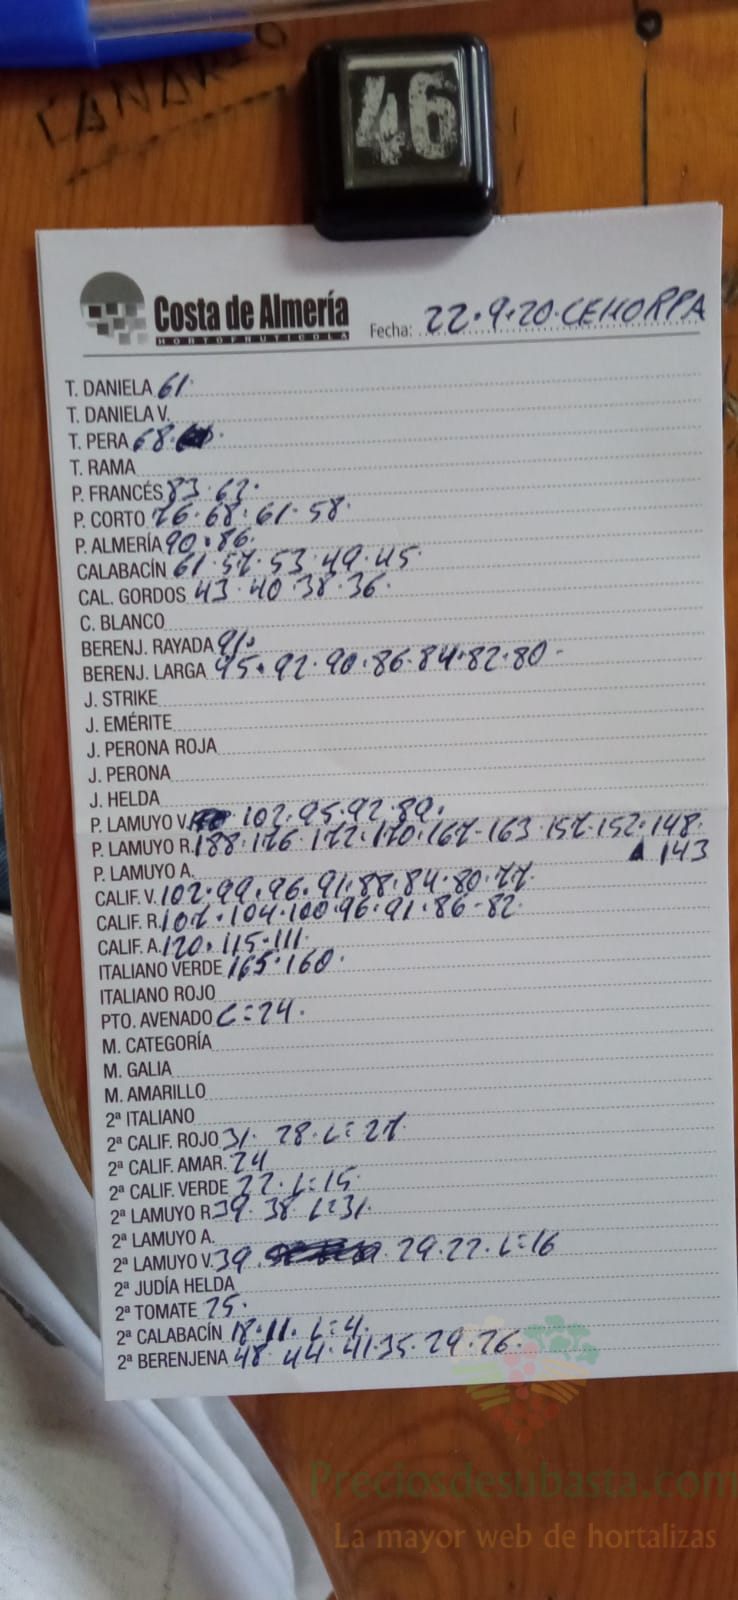 CANARIO
46
Costa de Almería
HORTOFRUTICOLA
Fecha: 22.9.20.CEHORPA
T. DANIELA 61.
T. DANIELA V.
T. PERA 68.
T. RAMA
P. FRANCÉS 83.62.
P. CORTO 76.68.61.58.
P. ALMERÍA 90.86.
CALABACÍN 61.57.53.49.45.
CAL. GORDOS 43.40.38.36.
C. BLANCO
BERENJ. RAYADA 91.
BERENJ. LARGA 95.92.90.86.84.82.80.
J. STRIKE
J. EMÉRITE
J. PERONA ROJA
J. PERONA
J. HELDA
P. LAMUYO V. 102.95.92.89.
P. LAMUYO R. 188.176.172.170.167.163.157.152.148.
143
P. LAMUYO A.
CALIF. V. 102.99.96.91.88.84.80.77.
CALIF. R. 107.104.100.96.91.86.82.
CALIF. A. 120.115.111.
ITALIANO VERDE 165.160.
ITALIANO ROJO
PTO. AVENADO L=24.
M. CATEGORÍA
M. GALIA
M. AMARILLO
2ª ITALIANO
2ª CALIF. ROJO 31. 28.L=27.
2ª CALIF. AMAR. 24
2ª CALIF. VERDE 22.L=15.
2ª LAMUYO R. 39.38.L=31.
2ª LAMUYO A.
2ª LAMUYO V. 39. 29.22.L=16
2ª JUDÍA HELDA
2ª TOMATE 25.
2ª CALABACÍN 18.11. L=4.
2ª BERENJENA 48.44.41.35.29.26.
Preciosdesubasta.com
La mayor web de hortalizas